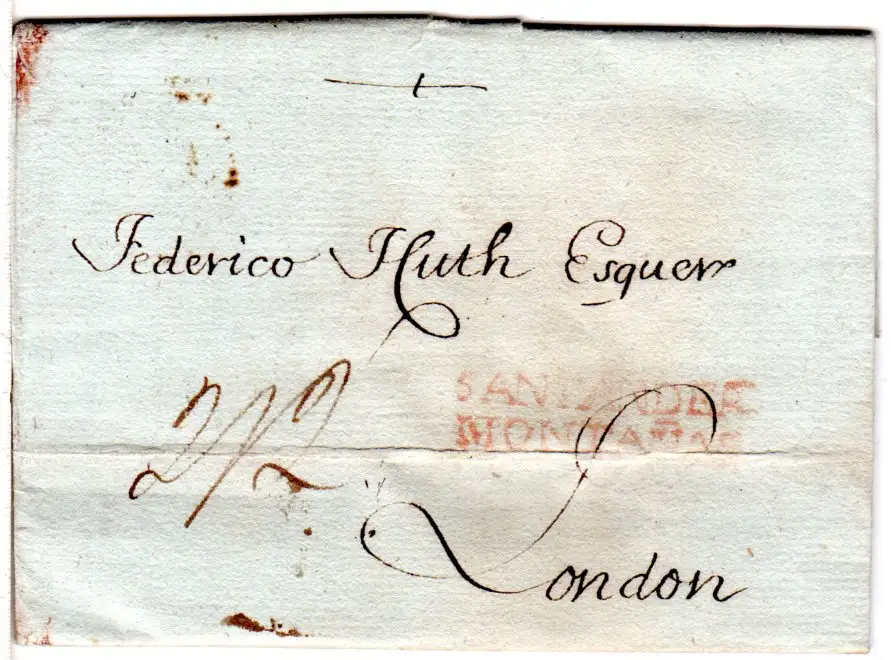 Federico Huth Esquerr
2/2
SANTANDER
MONTAÑAS
London